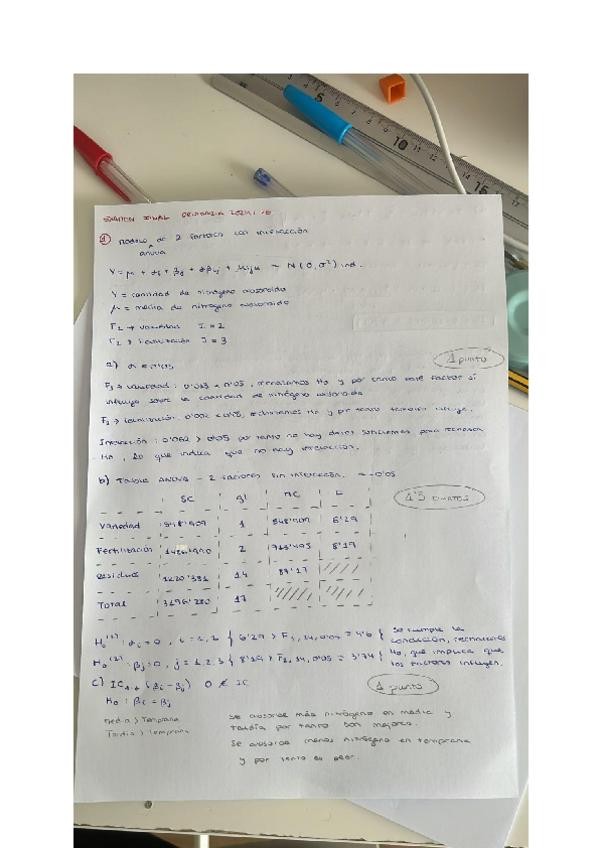 EXAMEN FINAL
① Modelo de 2 factores con interacción
anova
Y = μ + αi + βj + αβij + uijk ~ N(0,σ²) ind.
Y = cantidad de nitrógeno absorbido
μ = media de nitrógeno absorbido
F1 → variedad I = 2
F2 → fertilización J = 3
a)
1 punto
F1 → variedad: < 0'05, rechazamos H0 y por tanto este factor sí
influye sobre la cantidad de nitrógeno absorbido
F2 → fertilización: 0'002 < 0'05, rechazamos H0 y por tanto también influye.
Interacción: 0'062 > 0'05 por tanto no hay datos suficientes para rechazar
H0, lo que indica que no hay interacción.
b) Tabla ANOVA - 2 factores sin interacción. 0'05
1'5 puntos
SC gl MC F
Variedad 548'909 1 548'909 6'29
Fertilización 2 8'19
Residuos 1220'381 14 87'17
Total 3196'280 17
H0(1): αi = 0, i = 1,2 { 6'29 > F1,14,0'05 = 4'6
H0(2): βj = 0, j = 1,2,3 { 8'19 > F2,14,0'05 = 3'74
Se cumple la
condición, rechazamos
H0, que implica que
los factores influyen.
c) IC (βi - βj) 0 ∉ IC
1 punto
H0: βi = βj
Media > Temprana
Tardía > Temprana
Se absorbe más nitrógeno en media y
tardía por tanto son mejores.
Se absorbe menos nitrógeno en temprana
y por tanto es peor.